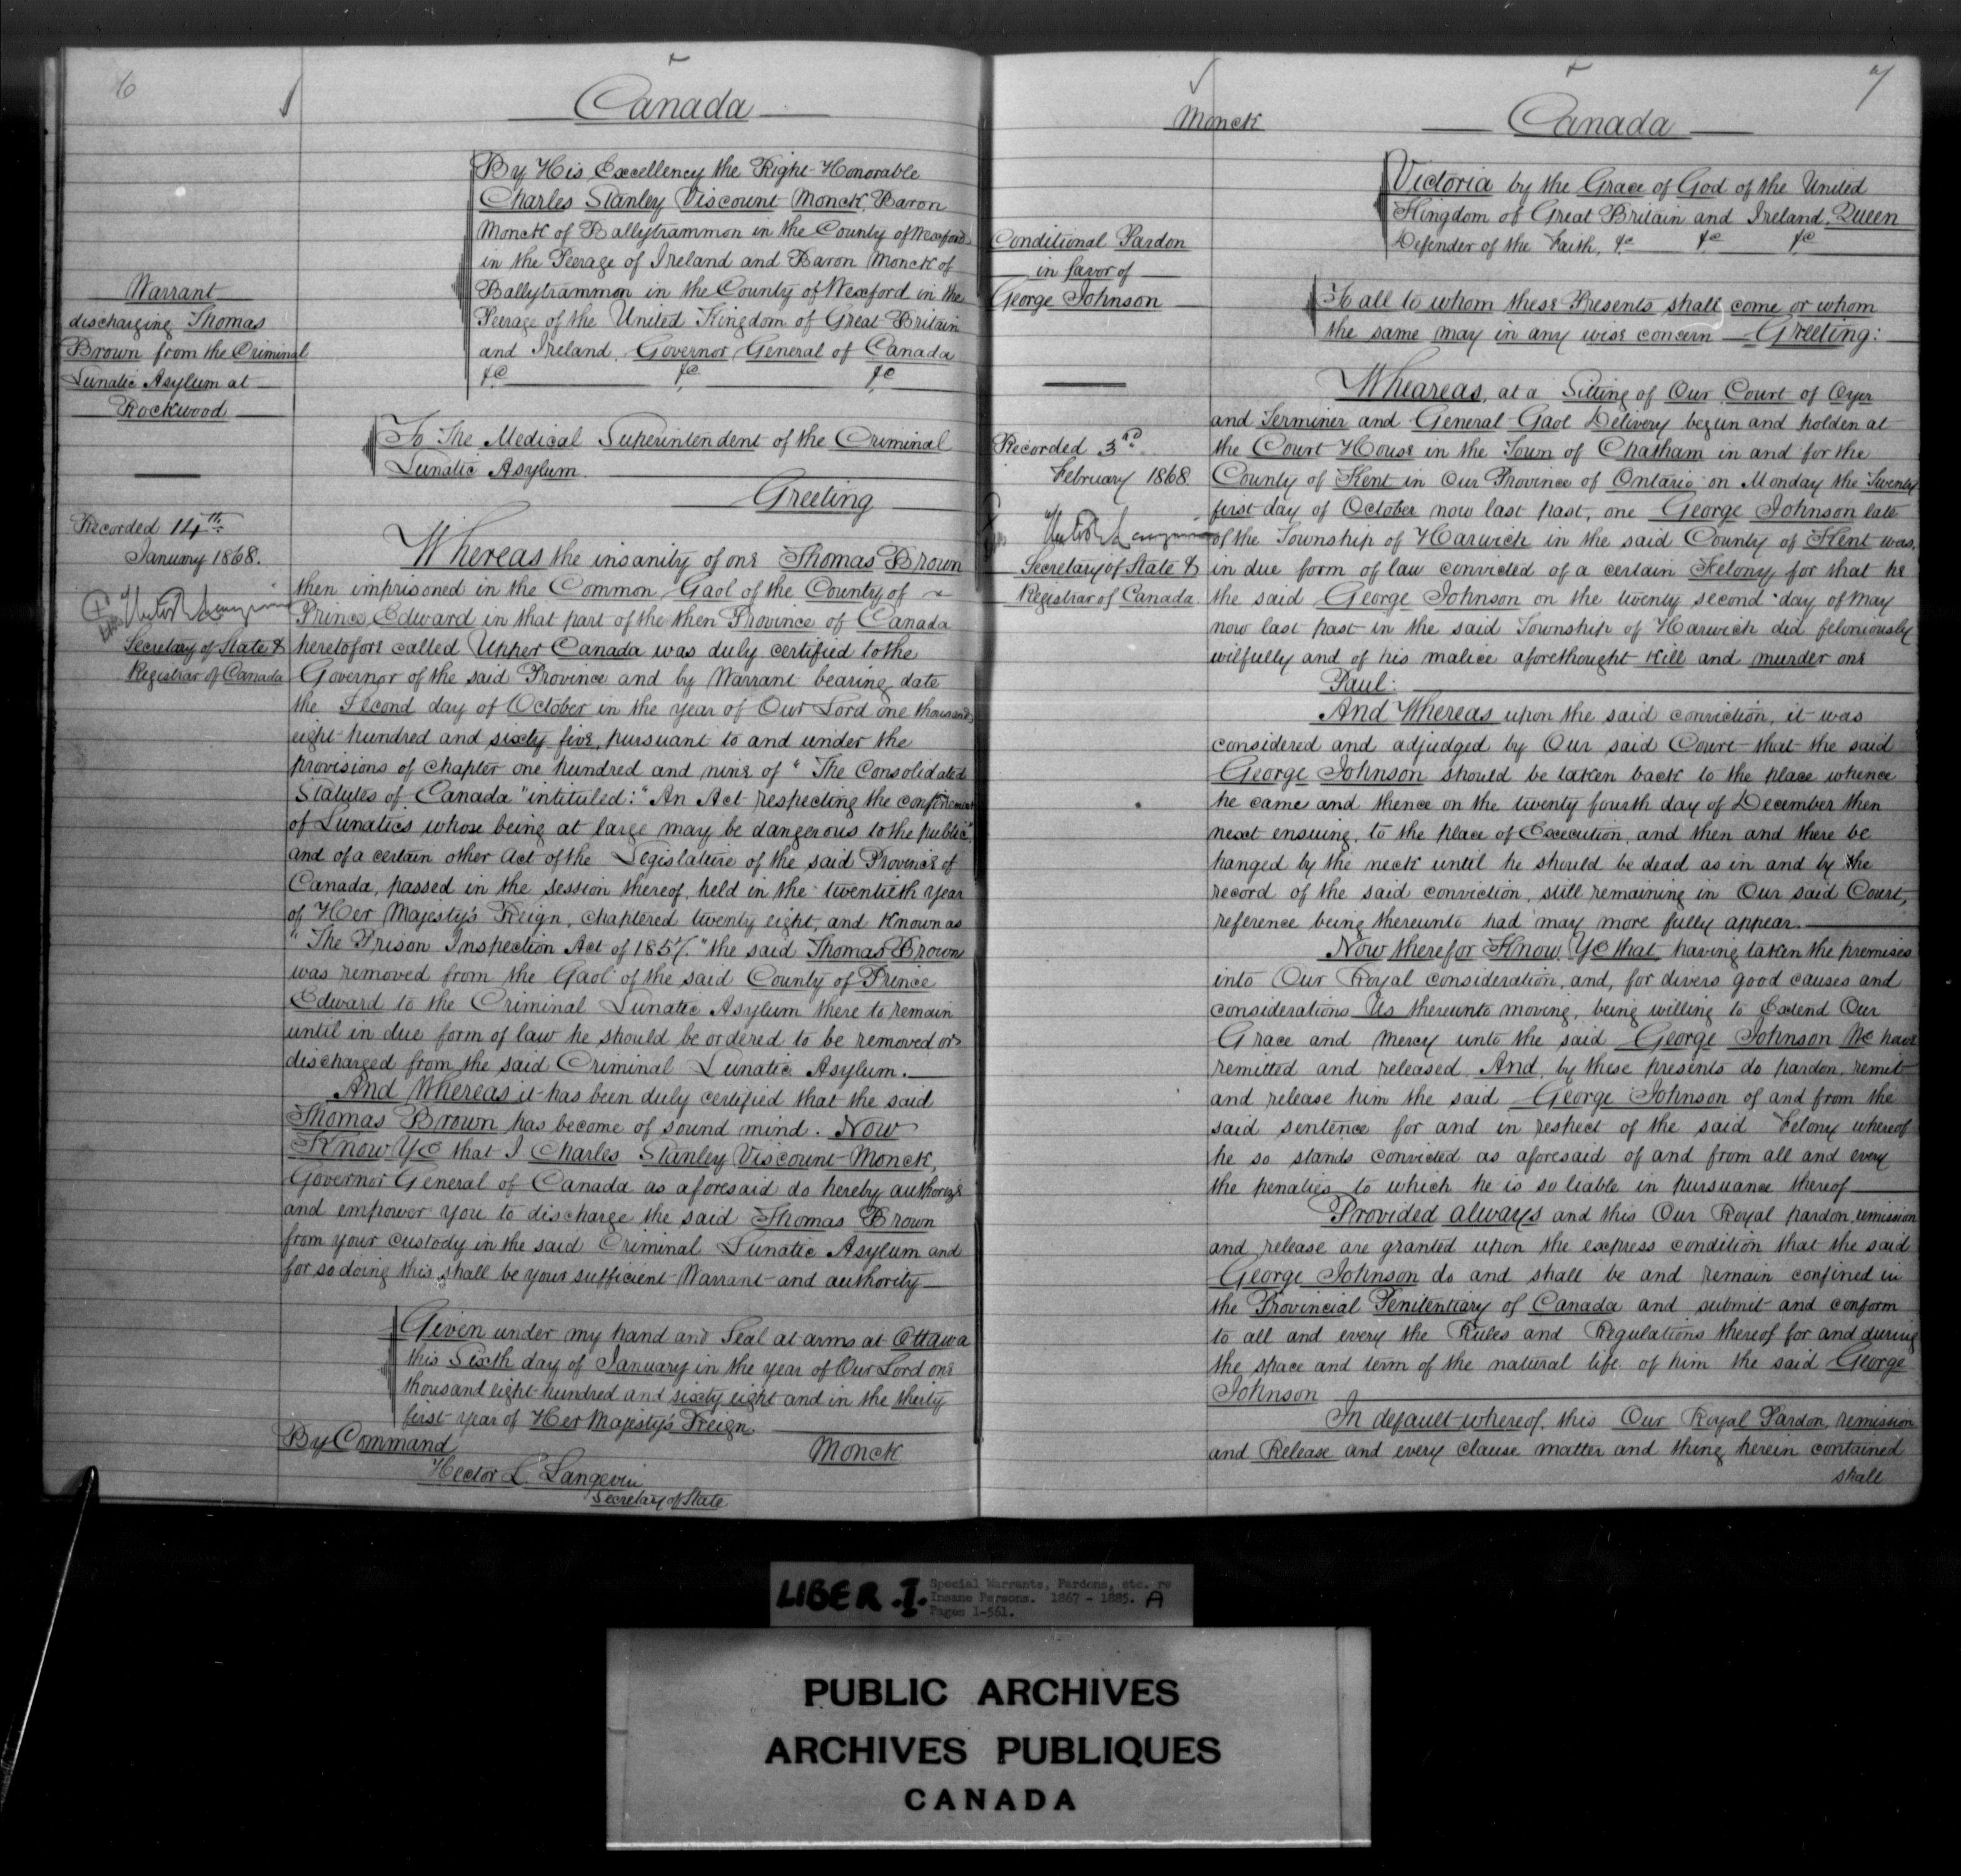 6
Canada
By His Excellency the Right Honorable
Charles Stanley Viscount Monck, Baron
Monck of Ballytrammon in the County of Wexford
in the Peerage of Ireland and Baron Monck of
Ballytrammon in the County of Wexford in the
Peerage of the United Kingdom of Great Britain
and Ireland, Governor General of Canada
&c &c &c
Warrant
discharging Thomas
Brown from the Criminal
Lunatic Asylum at
Rockwood
To The Medical Superintendent of the Criminal
Lunatic Asylum.
Greeting
Recorded 14th
January 1868.
Secretary of State &
Registrar of Canada
Whereas the insanity of one Thomas Brown
then imprisoned in the Common Gaol of the County of
Prince Edward in that part of the then Province of Canada
heretofore called Upper Canada was duly certified to the
Governor of the said Province and by Warrant bearing date
the Second day of October in the year of Our Lord one thousand
eight hundred and sixty five, pursuant to and under the
provisions of chapter one hundred and nine of "The Consolidated
Statutes of Canada" intituled: "An Act respecting the confinement
of Lunatics whose being at large may be dangerous to the public",
and of a certain other Act of the Legislature of the said Province of
Canada, passed in the session thereof, held in the twentieth year
of Her Majesty's Reign, chaptered twenty eight, and Known as
"The Prison Inspection Act of 1857." the said Thomas Brown
was removed from the Gaol of the said County of Prince
Edward to the Criminal Lunatic Asylum there to remain
until in due form of law he should be ordered to be removed or
discharged from the said Criminal Lunatic Asylum.
And Whereas it has been duly certified that the said
Thomas Brown has become of sound mind. Now
Know Ye that I Charles Stanley Viscount Monck,
Governor General of Canada as aforesaid do hereby authorize
and empower you to discharge the said Thomas Brown
from your custody in the said Criminal Lunatic Asylum and
for so doing this shall be your sufficient Warrant and authority
Given under my hand and Seal at arms at Ottawa
this Sixth day of January in the year of Our Lord one
thousand eight hundred and sixty eight and in the thirty
first year of Her Majesty's Reign.
By Command
Monck
Hector L. Langevin
Secretary of State
7
Monck
Canada
Victoria by the Grace of God of the United
Kingdom of Great Britain and Ireland, Queen
Defender of the Faith, &c &c &c
Conditional Pardon
in favor of
George Johnson
To all to whom these Presents shall come or whom
the same may in any wise concern Greeting:
Recorded 3rd
February 1868
Secretary of State &
Registrar of Canada.
Wheareas, at a Sitting of Our Court of Oyer
and Terminer and General Gaol Delivery begun and holden at
the Court House in the Town of Chatham in and for the
County of Kent in Our Province of Ontario on Monday the Twenty
first day of October now last past, one George Johnson late
of the Township of Harwich in the said County of Kent was,
in due form of law convicted of a certain Felony for that he
the said George Johnson on the twenty second day of May
now last past in the said Township of Harwich did feloniously
wilfully and of his malice aforethought Kill and murder one
Paul:
And Whereas upon the said conviction, it was
considered and adjudged by Our said Court that the said
George Johnson should be taken back to the place whence
he came and thence on the twenty fourth day of December then
next ensuing, to the place of Execution, and then and there be
hanged by the neck until he should be dead as in and by the
record of the said conviction, still remaining in Our said Court,
reference being thereunto had may more fully appear.
Now therefor Know Ye that having taken the premises
into Our Royal consideration, and, for divers good causes and
considerations Us thereunto moving, being willing to Extend Our
Grace and Mercy unto the said George Johnson We have
remitted and released And, by these presents do pardon, remit
and release him the said George Johnson of and from the
said sentence for and in respect of the said Felony whereof
he so stands convicted as aforesaid of and from all and every
the penalties to which he is so liable in pursuance thereof
Provided always and this Our Royal pardon, remission
and release are granted upon the express condition that the said
George Johnson do and shall be and remain confined in
the Provincial Penitentiary of Canada and submit and conform
to all and every the Rules and Regulations thereof for and during
the space and term of the natural life of him the said George
Johnson
In default whereof, this Our Royal Pardon, remission
and Release and every clause matter and thing herein contained
shall
LIBER I. Special Warrants, Pardons, etc. re
Insane Persons. 1867 - 1885. A
Pages 1-561.
PUBLIC ARCHIVES
ARCHIVES PUBLIQUES
CANADA